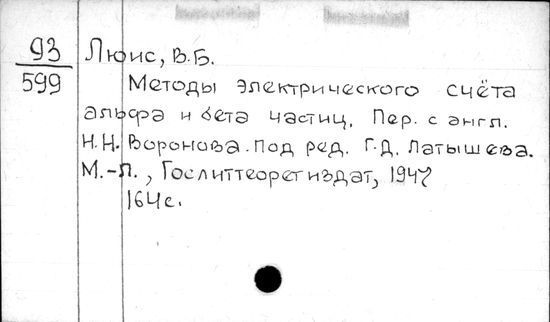 93 Люис, В.Б.
599 Методы электрического счёта
альфа и бета частиц. Пер. с англ.
Н.Н. Воронова. Под ред. Г.Д. Латышева.
М.-Л., Гослиттеоретиздат, 1947
164с.